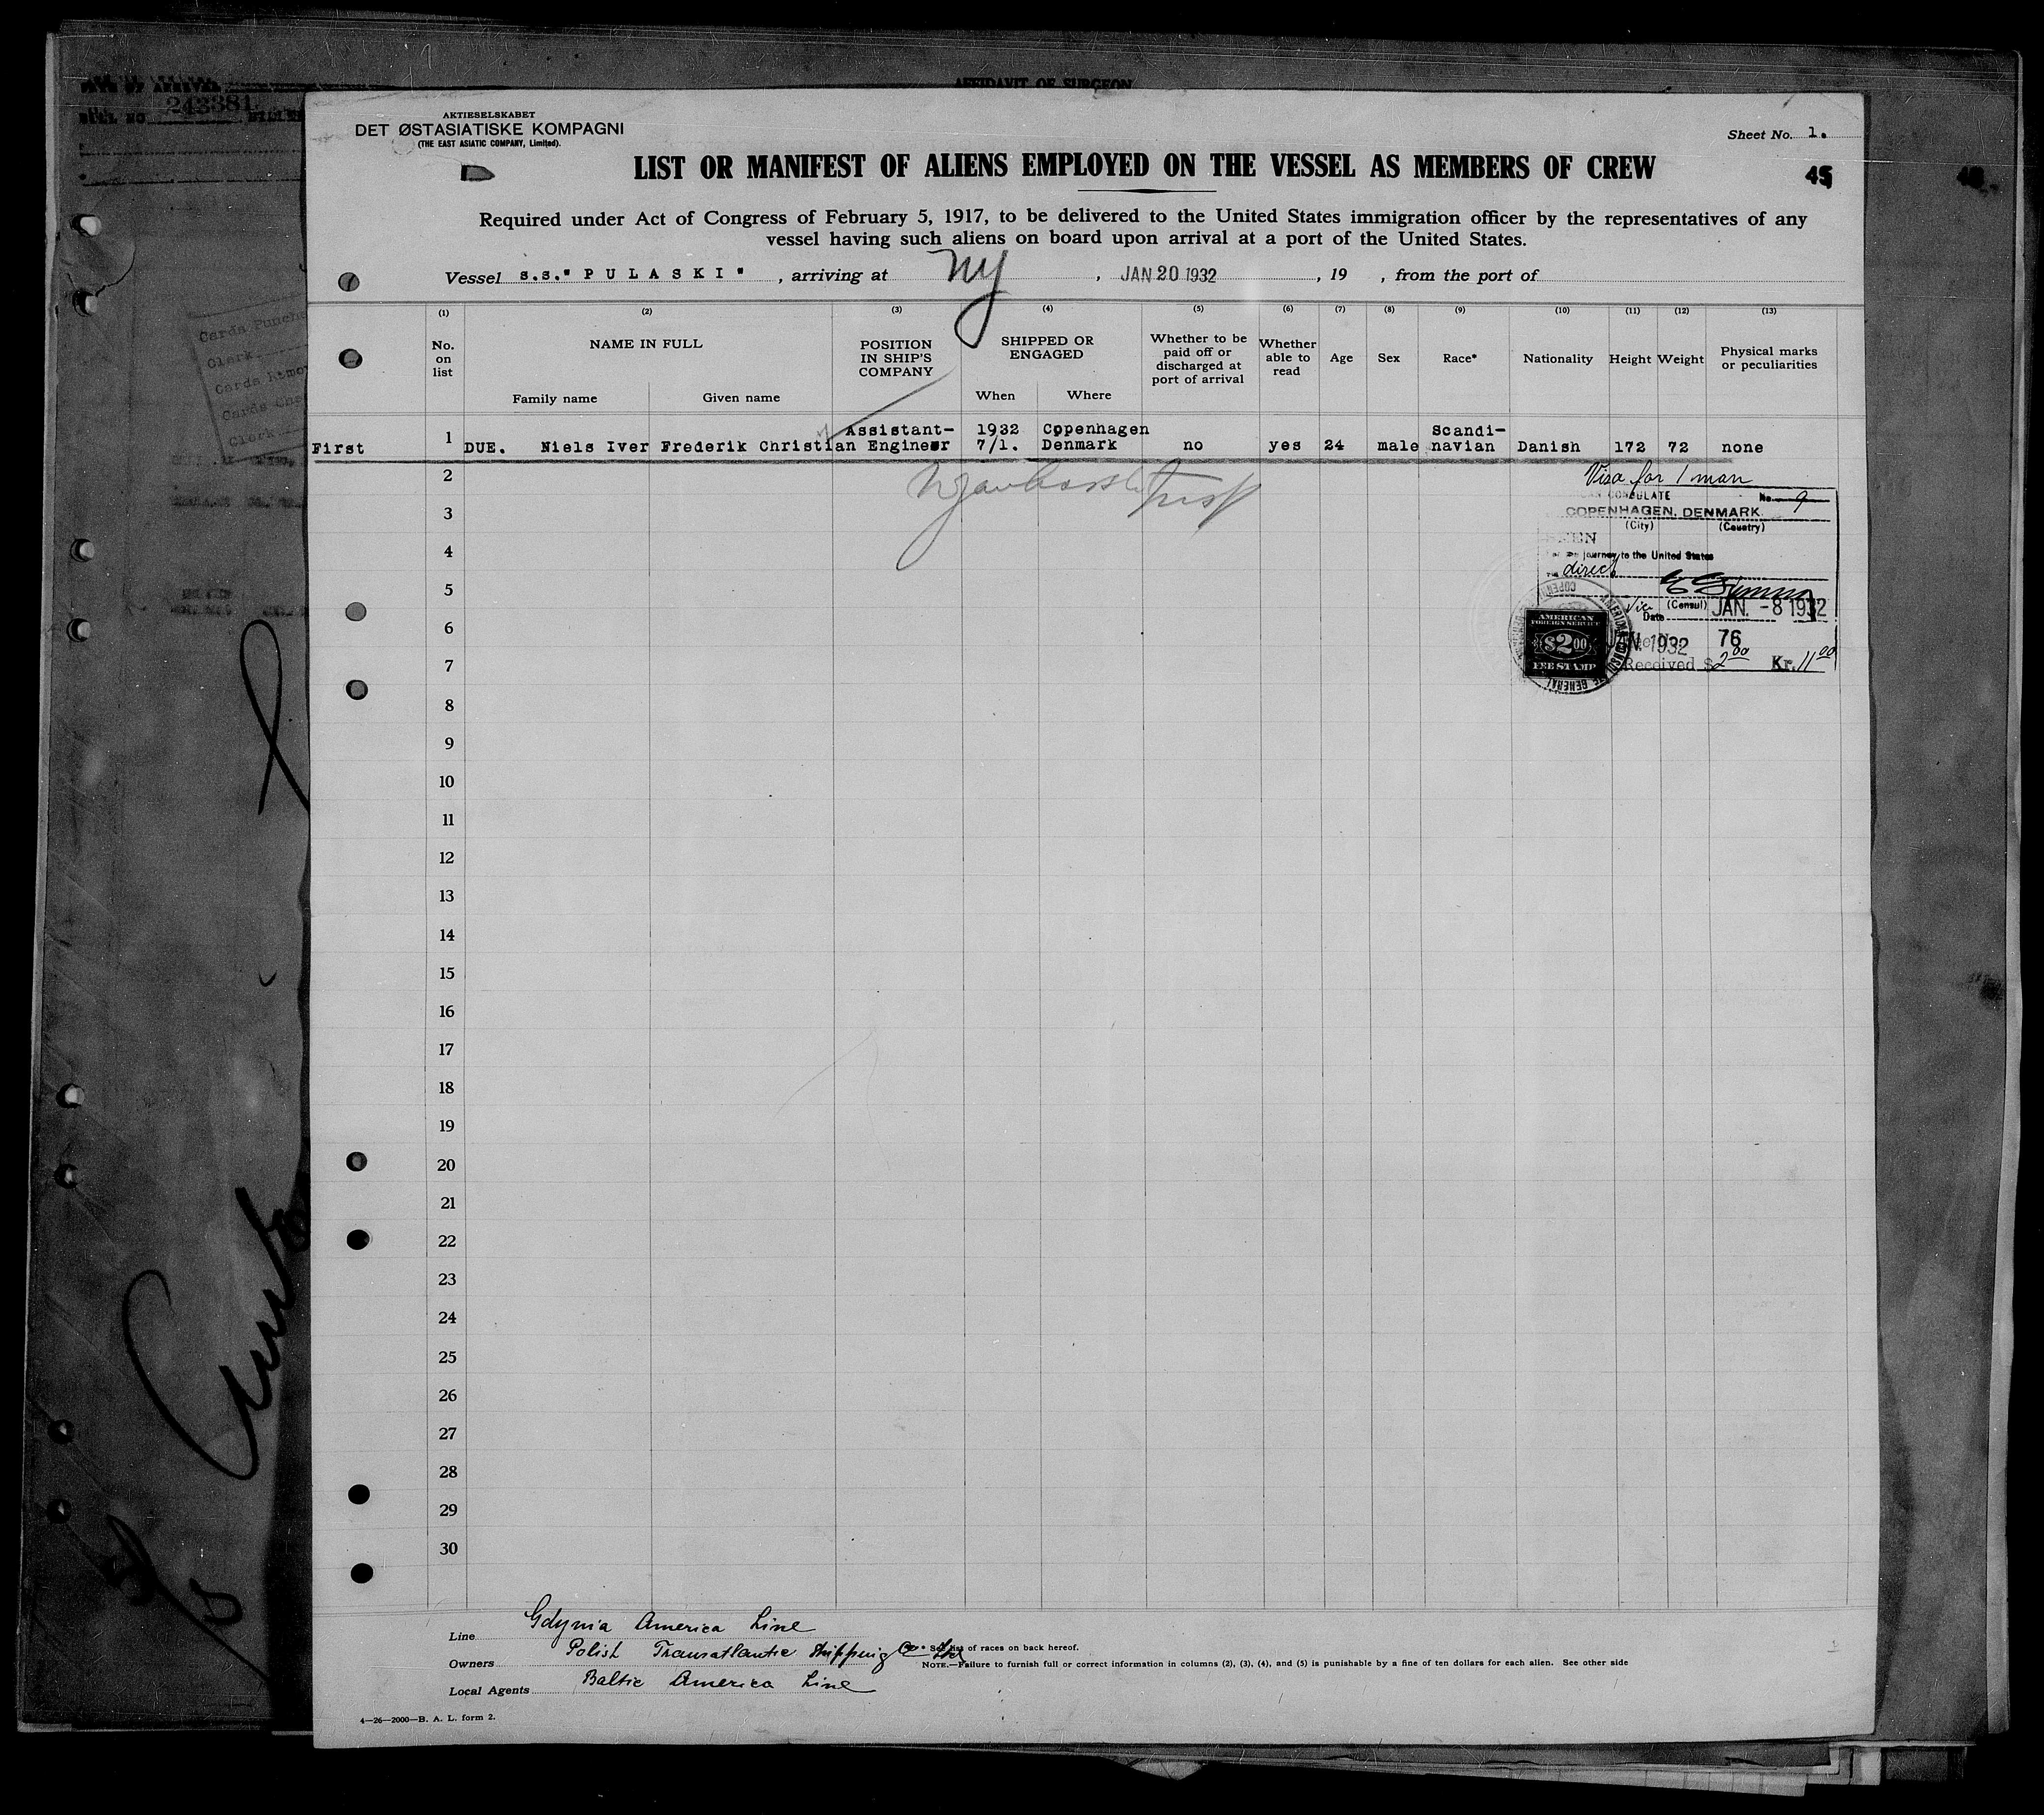 AFFIDAVIT OF SURGEON
DATE OF ARRIVAL
BILL NO. 243381
Cards Punche
Clerk
Cards Remov
Cards Che
Clerk
AKTIESELSKABET
DET ØSTASIATISKE KOMPAGNI
(THE EAST ASIATIC COMPANY, Limited).
Sheet No. 1.
LIST OR MANIFEST OF ALIENS EMPLOYED ON THE VESSEL AS MEMBERS OF CREW
45
Required under Act of Congress of February 5, 1917, to be delivered to the United States immigration officer by the representatives of any
vessel having such aliens on board upon arrival at a port of the United States.
Vessel s.s." P U L A S K I " , arriving at NY , JAN 20 1932 , 19 , from the port of
(1) (2) (3) (4) (5) (6) (7) (8) (9) (10) (11) (12) (13)
No. on list
NAME IN FULL
Family name Given name
POSITION IN SHIP'S COMPANY
SHIPPED OR ENGAGED
When Where
Whether to be paid off or discharged at port of arrival
Whether able to read
Age
Sex
Race*
Nationality
Height
Weight
Physical marks or peculiarities
Assistant- 1932 Copenhagen Scandi-
First 1 DUE. Niels Iver Frederik Christian Engineer 7/1. Denmark no yes 24 male navian Danish 172 72 none
2
3
4
5
6
7
8
9
10
11
12
13
14
15
16
17
18
19
20
21
22
23
24
25
26
27
28
29
30
Visa for 1 man
CONSULATE No. 9
COPENHAGEN, DENMARK
(City) (Country)
SEEN
journey to the United States
direct
Vice (Consul)
Date JAN. -8 1932
JAN. 1932 76
Received $2.00 Kr. 11.00
AMERICAN
FOREIGN SERVICE
$2.00
FEE STAMP
Line Gdynia America Line
Owners Polish Transatlantic Shipping Co Ltd
Local Agents Baltic America Line
* See list of races on back hereof.
NOTE.—Failure to furnish full or correct information in columns (2), (3), (4), and (5) is punishable by a fine of ten dollars for each alien. See other side
4—26—2000—B. A. L. form 2.